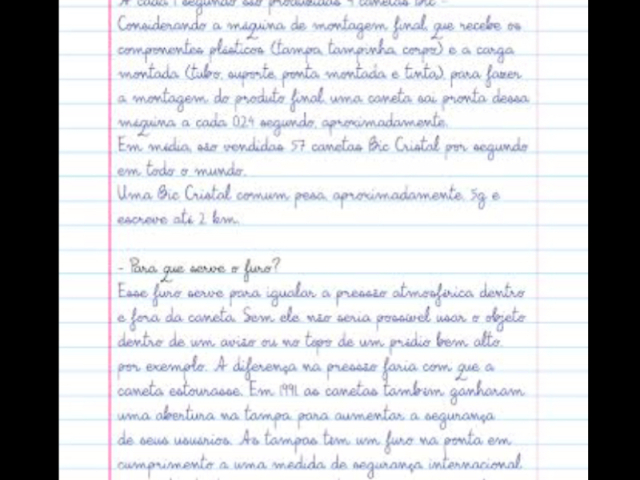 A cada 1 segundo são produzidas 4 canetas Bic -
Considerando a máquina de montagem final, que recebe os
componentes plásticos (tampa, tampinha, corpo) e a carga
montada (tubo, suporte, ponta montada e tinta), para fazer
a montagem do produto final, uma caneta sai pronta dessa
máquina a cada 0,24 segundo, aproximadamente.
Em média, são vendidas 57 canetas Bic Cristal por segundo
em todo o mundo.
Uma Bic Cristal comum pesa, aproximadamente, 5g e
escreve até 2 km.
- Para que serve o furo?
Esse furo serve para igualar a pressão atmosférica dentro
e fora da caneta. Sem ele não seria possível usar o objeto
dentro de um avião ou no topo de um prédio bem alto,
por exemplo. A diferença na pressão faria com que a
caneta estourasse. Em 1991 as canetas também ganharam
uma abertura na tampa para aumentar a segurança
de seus usuários. As tampas têm um furo na ponta em
cumprimento a uma medida de segurança internacional